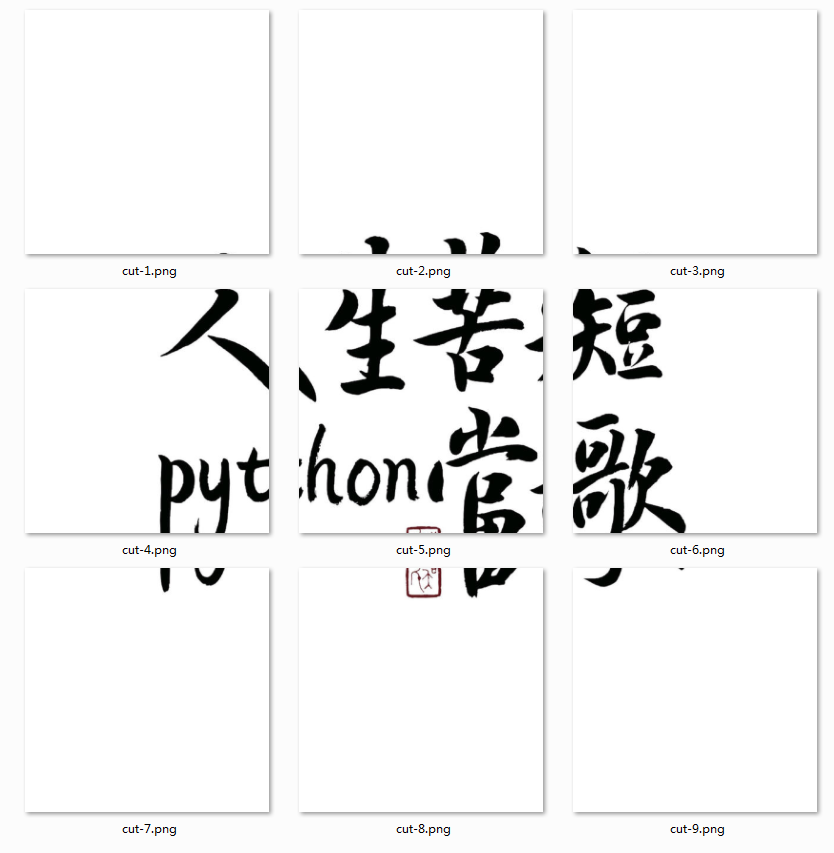 cut-1.png
cut-2.png
cut-3.png
人生苦短
python當歌
cut-4.png
cut-5.png
cut-6.png
cut-7.png
cut-8.png
cut-9.png